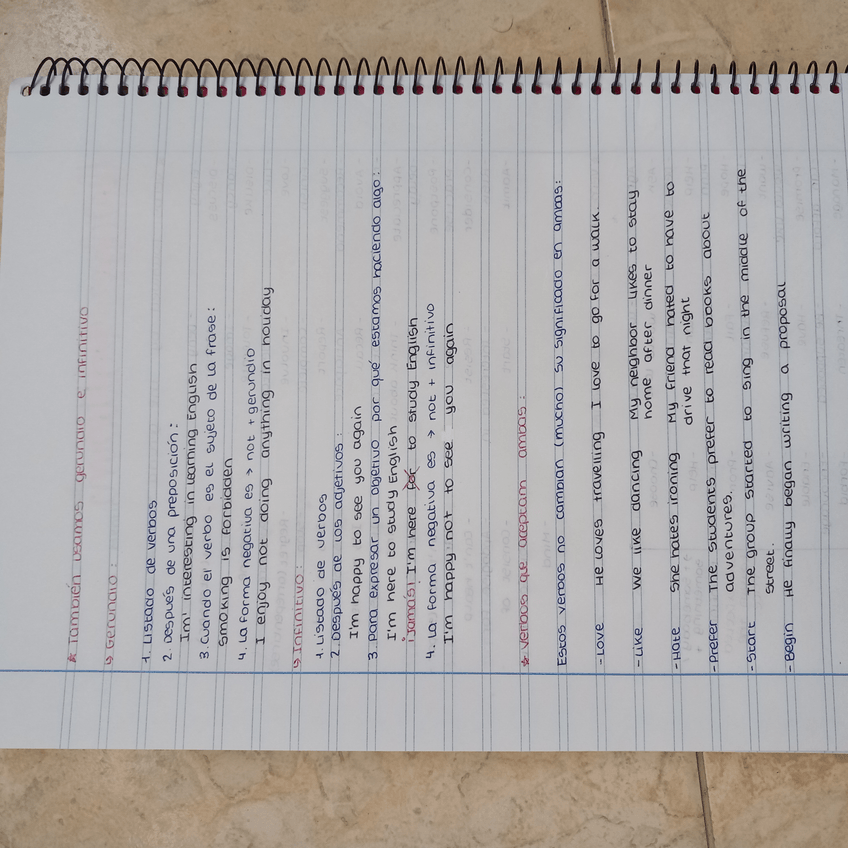 * También usamos gerundio e infinitivo
↳ Gerundio:
1. Listado de verbos
2. Después de una preposición:
Im' interesting in learning English
3. Cuando el verbo es el sujeto de la frase:
Smoking is forbidden
4. La forma negativa es → not + gerundio
I enjoy not doing anything in holiday
↳ Infinitivo:
1. Listado de verbos
2. Después de los adjetivos:
I'm happy to see you again
3. Para expresar un objetivo por qué estamos haciendo algo:
I'm here to study English
¡Jamás! I'm here for to study English
4. La forma negativa es → not + infinitivo
I'm happy not to see you again
* Verbos que aceptam ambas:
Estos verbos no cambian (mucho) su significado en ambas:
- Love He loves travelling I love to go for a walk.
- Like We like dancing My neighbor likes to stay
home after dinner
- Hate She hates ironing My friend hated to have to
drive that night
- Prefer The students prefer to read books about
adventures.
- Start The group started to sing in the middle of the
street.
- Begin He finally began writing a proposal